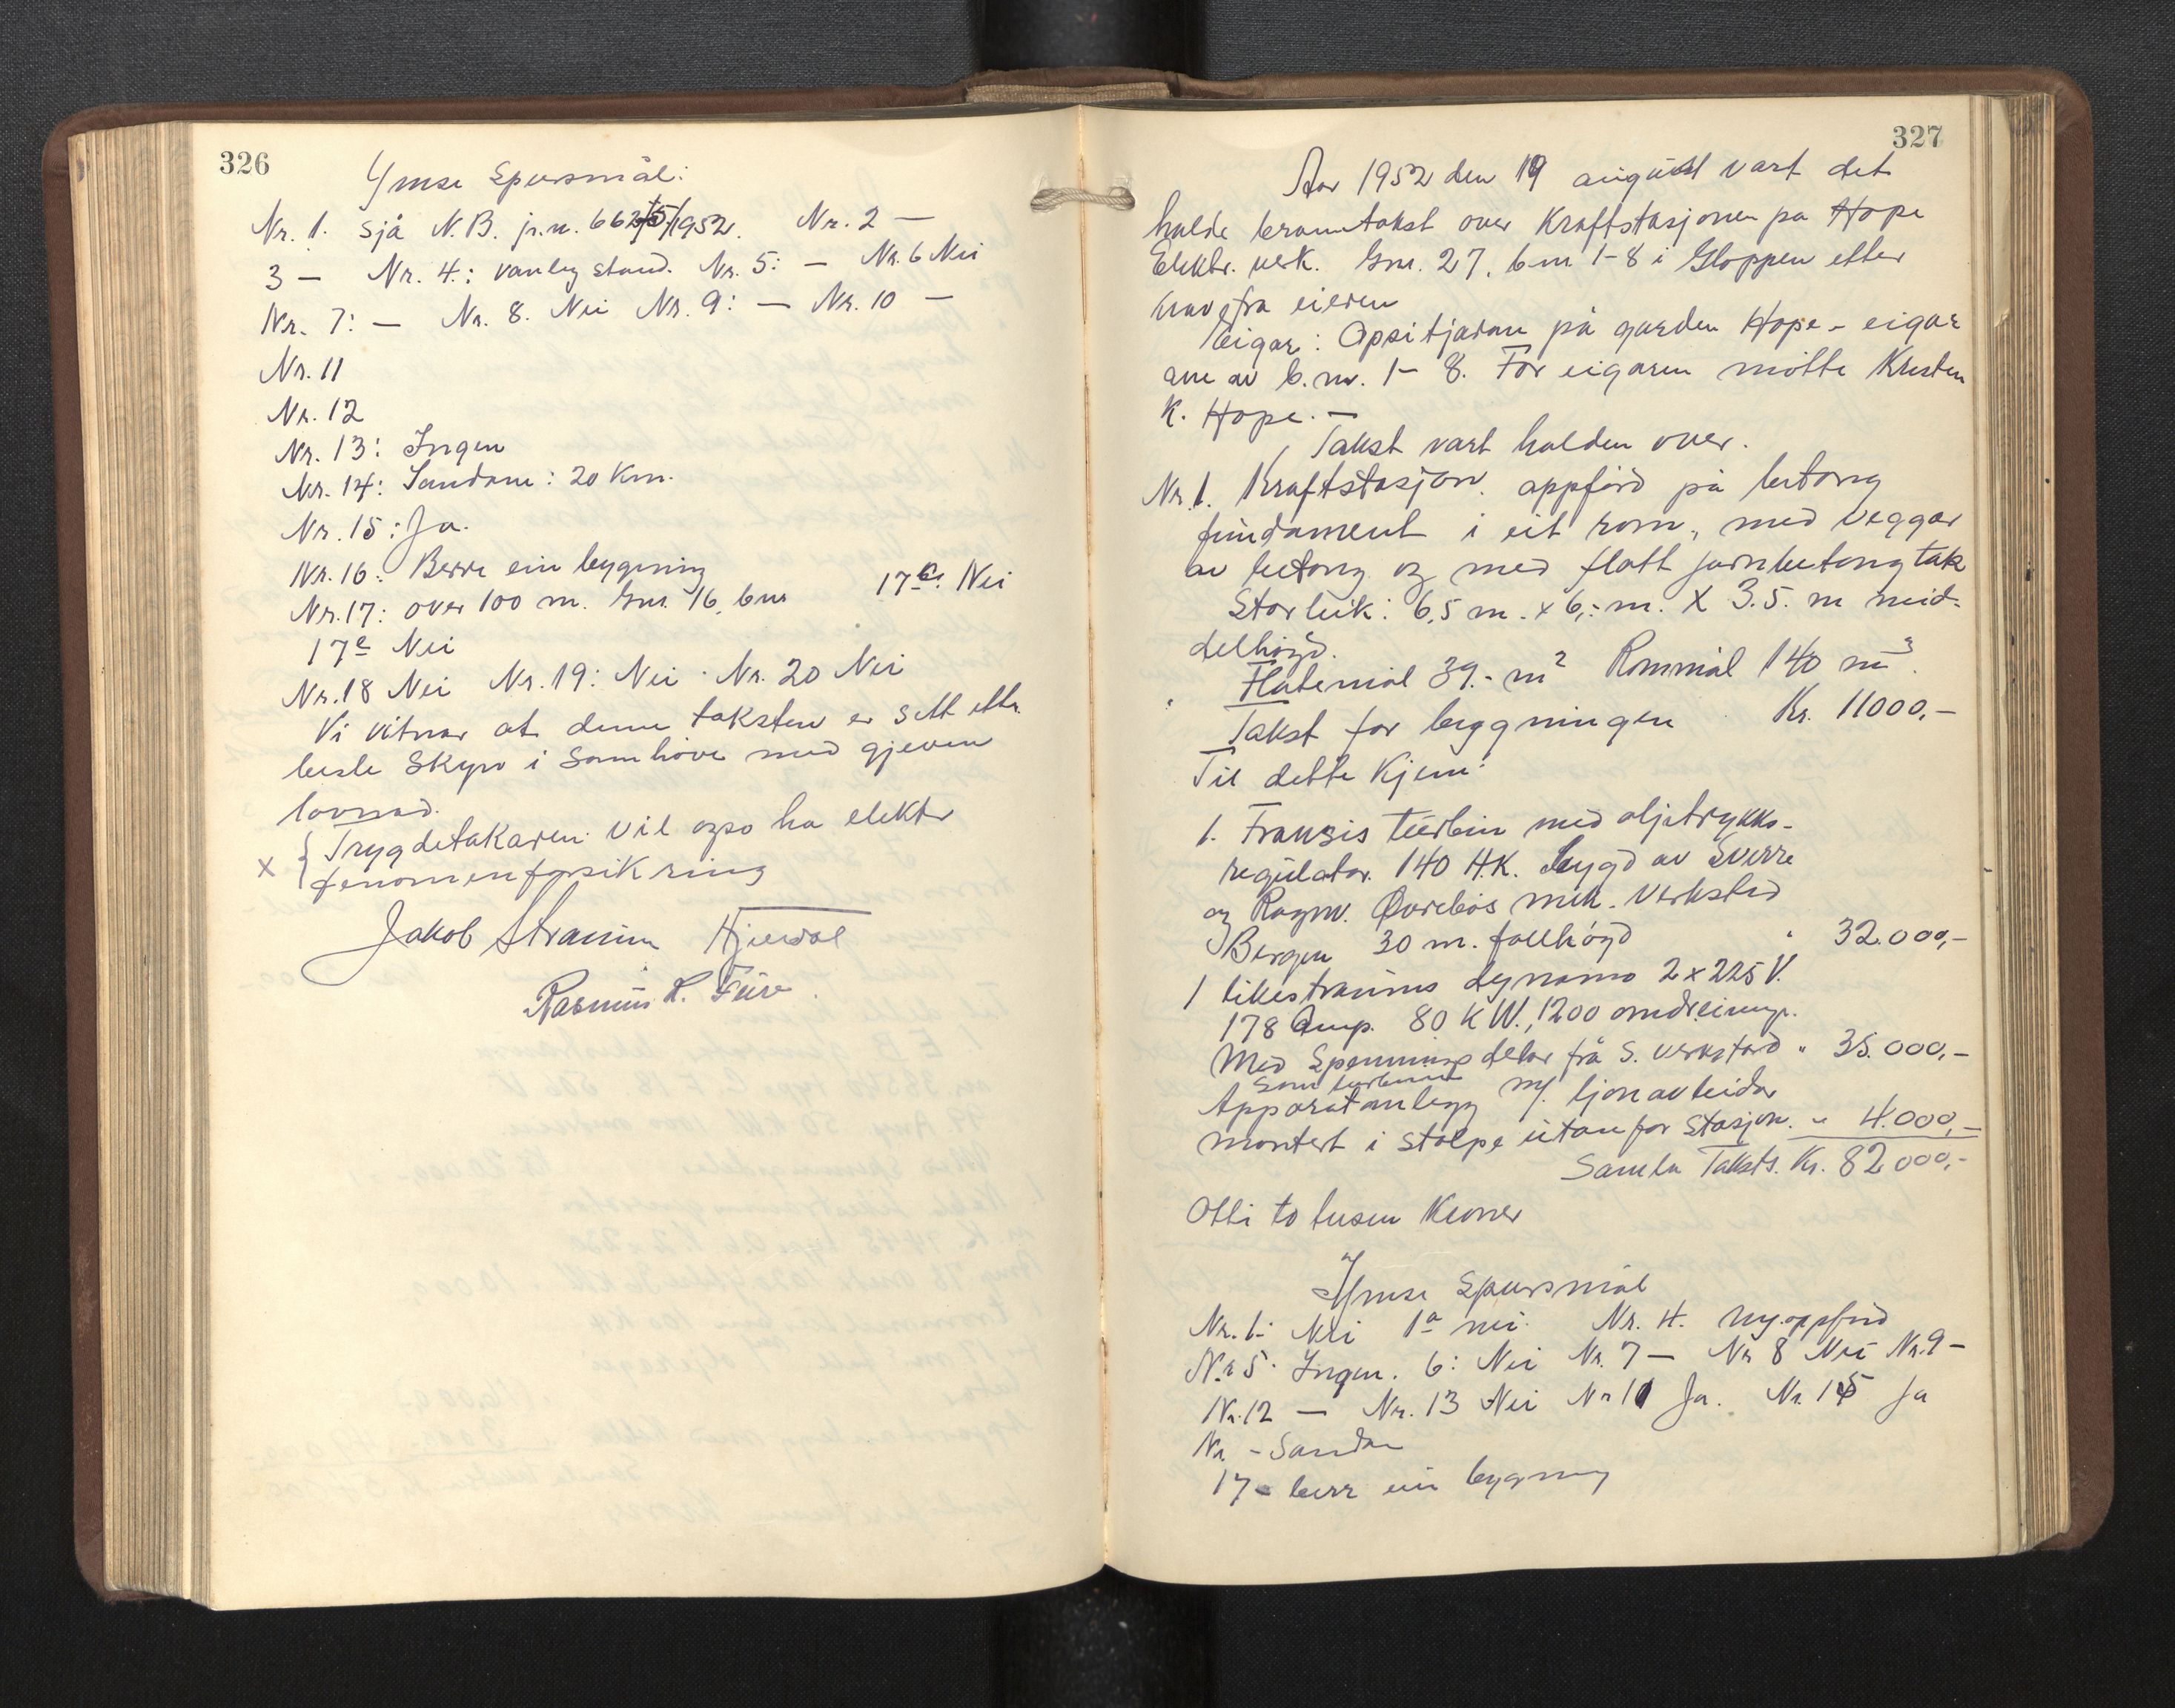 326
Ymse Spursmål:
Nr. 1. sjå N.B. jr.n. 662/1952. Nr. 2 —
3 — Nr. 4.: vanleg stand. Nr. 5: — Nr. 6 Nei
Nr. 7: — Nr. 8. Nei Nr. 9: — Nr. 10 —
Nr. 11
Nr. 12
Nr. 13: Ingen
Nr. 14: Sandane: 20 Km.
Nr. 15: Ja.
Nr. 16: Berre ein bygning
Nr. 17: over 100 m. Gnr. 16, bnr 17 Nei
17e Nei
Nr. 18 Nei Nr. 19: Nei. Nr. 20 Nei
Vi vitnar at denne taksten er sett etter
beste Skyn i Samhøve med gjeven
lovnad.
x { Trygdetakaren vil ogso ha elektr
fenomenforsikring
Jakob Straume Hjelvol
Rasmus L. Fure.
327
Aar 1952 den 19 august vart det
halde branntakst over Kraftstasjonen på Hope
Elektr. verk. Gnr. 27, bnr 1-8 i Gloppen etter
krav frå eieren
Eigar: Opsitjarane på garden Hope - eigar
ane av b.nr. 1-8. For eigaren møtte Kristen
K. Hope. —
Takst vart halden over.
Nr. 1. Kraftstasjon. oppførd på betong
fundament i eit rom, med veggar
av betong og med flatt jarnbetongtak
Storleik: 6,5 m. x 6,- m. x 3.5. m mid-
delhøgd.
Flatemål 39.- m² Rommål 140 m³.
Takst for byggningen Kr. 11000,-
Til dette Kjem:
1. Fransis turbin med oljetrykks-
regulator. 140 H.K. bygd av Sverre
og Ragnv. Øvrebøs mek. Verksted
Bergen 30 m. fallhøgd " 32.000,-
1 likestraums dynamo 2 x 225 V.
178 Amp. 80 KW., 1200 omdreiingr.
Med Spenningsdelar frå S. verkstad " 35.000,-
som turbinen
Apparatanlegg m/ ljonavleidar
montert i stolpe utanfor Stasjon. " 4.000,-
Samla Takst. Kr. 82000,-
Otti to tusen Kroner
Ymse Spursmål
Nr. 1: Nei 1a nei. Nr. 4. Ny.oppførd
Nr 5. Ingen. 6: Nei Nr. 7 — Nr 8 Nei Nr. 9 —
Nr. 12 — Nr. 13 Nei Nr 11 Ja. Nr. 15 Ja
Nr. - Sandane
17 - berr ein bygning